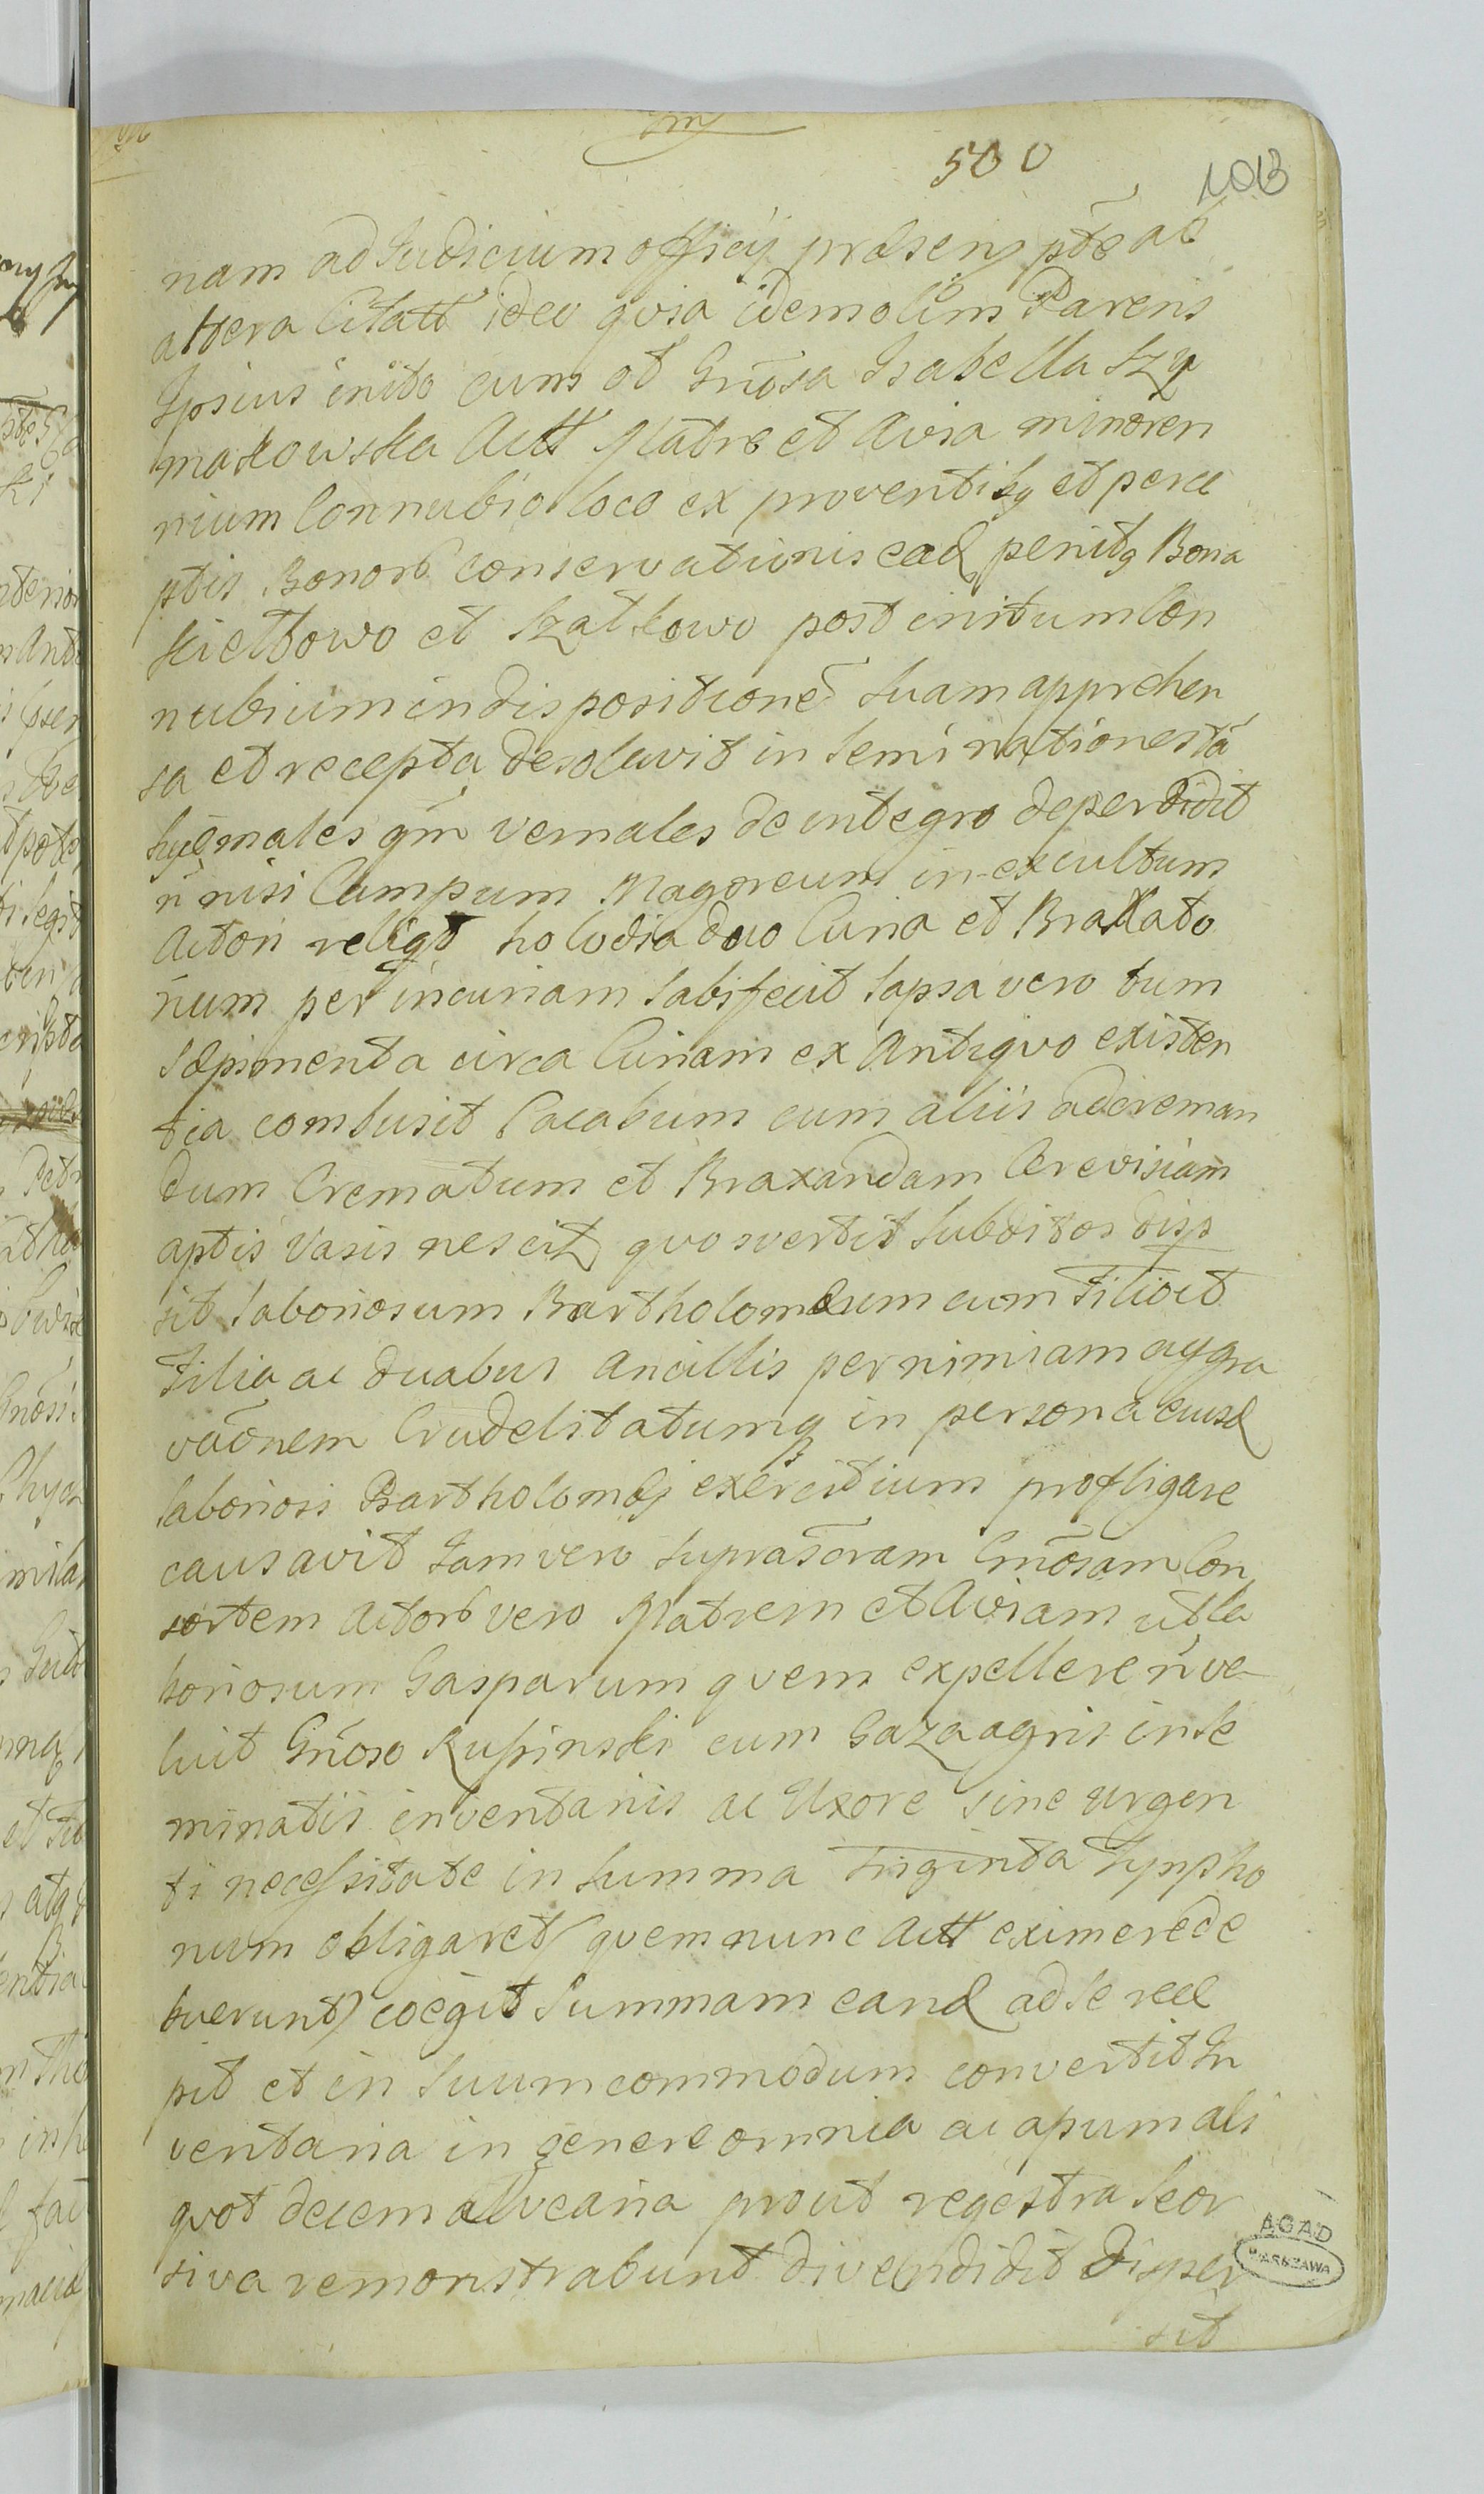 500
1013
nam ad Judicium officij præsens pte ab
altera Citatt ideo qvia idem olim Parens
Ipsius inito cum olt Gnosa Isabella Szy
makowska Actt Matre et Avia minoren
nium Connubio loco ex proventibq et perce
ptis Bonorb conservationis ead penitq Bona
Kiełbowo et Szatkowo post initum Con
nubium in dispositione suam apprehen
sa et recepta desolavit inseminationes ta
hyemales qm vernales de integro deperdidit
n nisi Campum Magoreum in excultum
Actori reliqt holodia duo Curia et Braxato
rium per incuriam labifecit lapsa vero tum
sæpimenta circa Curiam ex Antiqvo existen
tia combusit Cacabum cum aliis ad creman
dum Crematum et Braxandam Cerevisiam
aptis vasis nescitz qvo vertit Subditos disp
sit laboriosum Bartholomæum cum Filio et
Filia ac duabus Ancillis per nimiam aggra
vaonem Crudelitatumq in persona eiusd
laboriosi Bartholomæj exercitium profligare
causavit Jam vero supraScram Gnosam Con
sortem Actorb vero Matrem et Aviam ut la
boriosum Gasparum qvem expellere n va
luit Gnoso Rupinski cum Gaza agris inse
minatis inventariis ac Uxore sine urgen
ti necessitate in Summa Triginta Tympho
num obligaret qvem nunc Actt eximere de
buerunt coegit Summam eand ad se rece
pit et in suum commodum convertit In
ventaria in genere omnia ac apum ali
qvot decem alvearia prout regestra seor
siva remonstrabunt divendidit disper
sit
AGAD
WARSZAWA